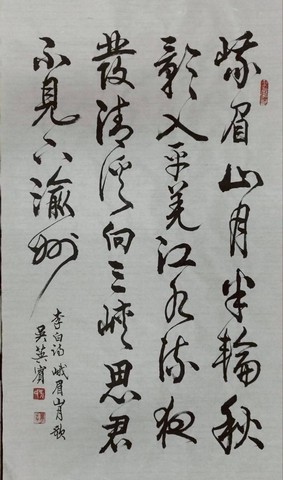 峨眉山月半輪秋
影入平羌江水流夜
發清溪向三峽思君
不見下渝州
李白詩峨眉山月歌
吴英賓